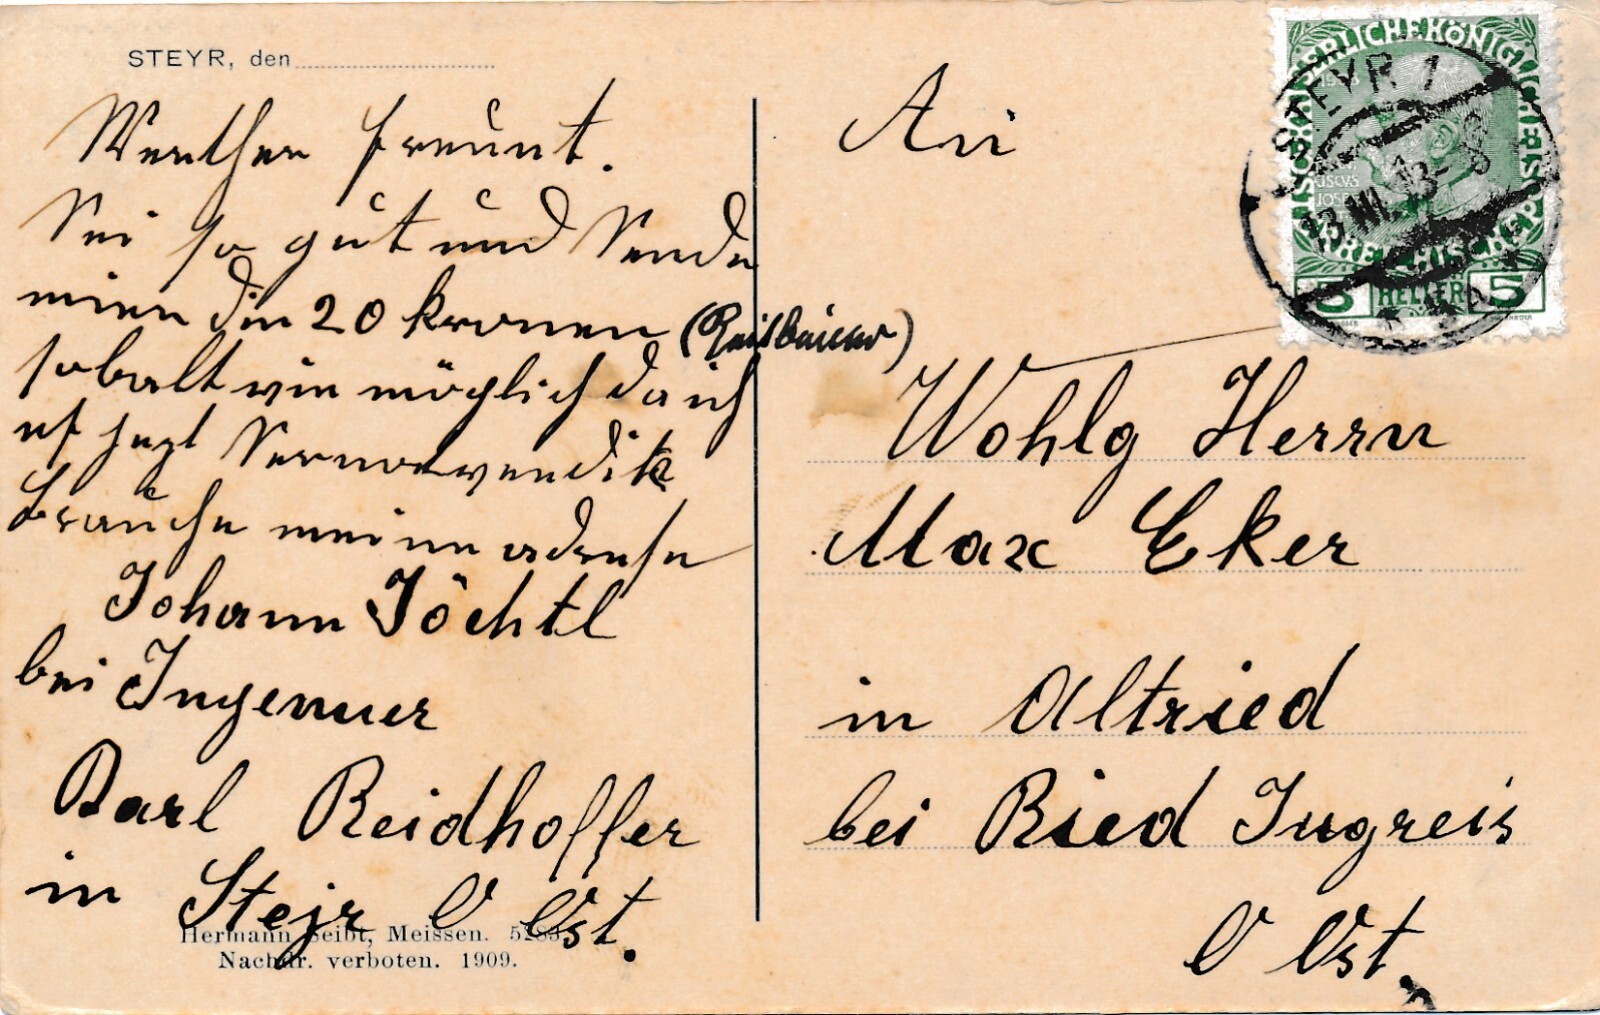 STEYR, den
Werther freunt.
Sei so gut und Sende
mier die 20 kronen (Reitbauer)
sobalt wie möglich da ich
es jezt Sernotwendik
brauche meine adresse
Johann Jöchtl
bei Ingenuer
Karl Reidhoffer
in Stejr O Öst.
Hermann Seibt, Meissen. 5283
Nachdr. verboten. 1909.
An
Wohlg Herrn
Max Eker
in Altried
bei Ried Ingreis
O Öst.
KAISERLICHE KÖNIGLICHE
ÖSTERREICHISCHE POST
5 HELLER 5
STEYR 1